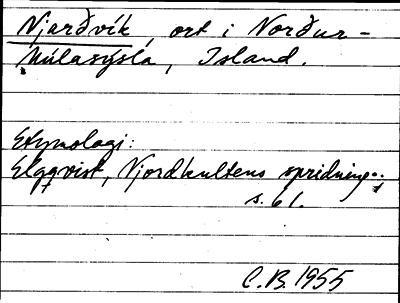 Njarðvík, ort i Norður-
Múlasýsla, Island.
Etymologi:
Elgqvist, Njordkultens spridning..,
s. 61.
C.B. 1955